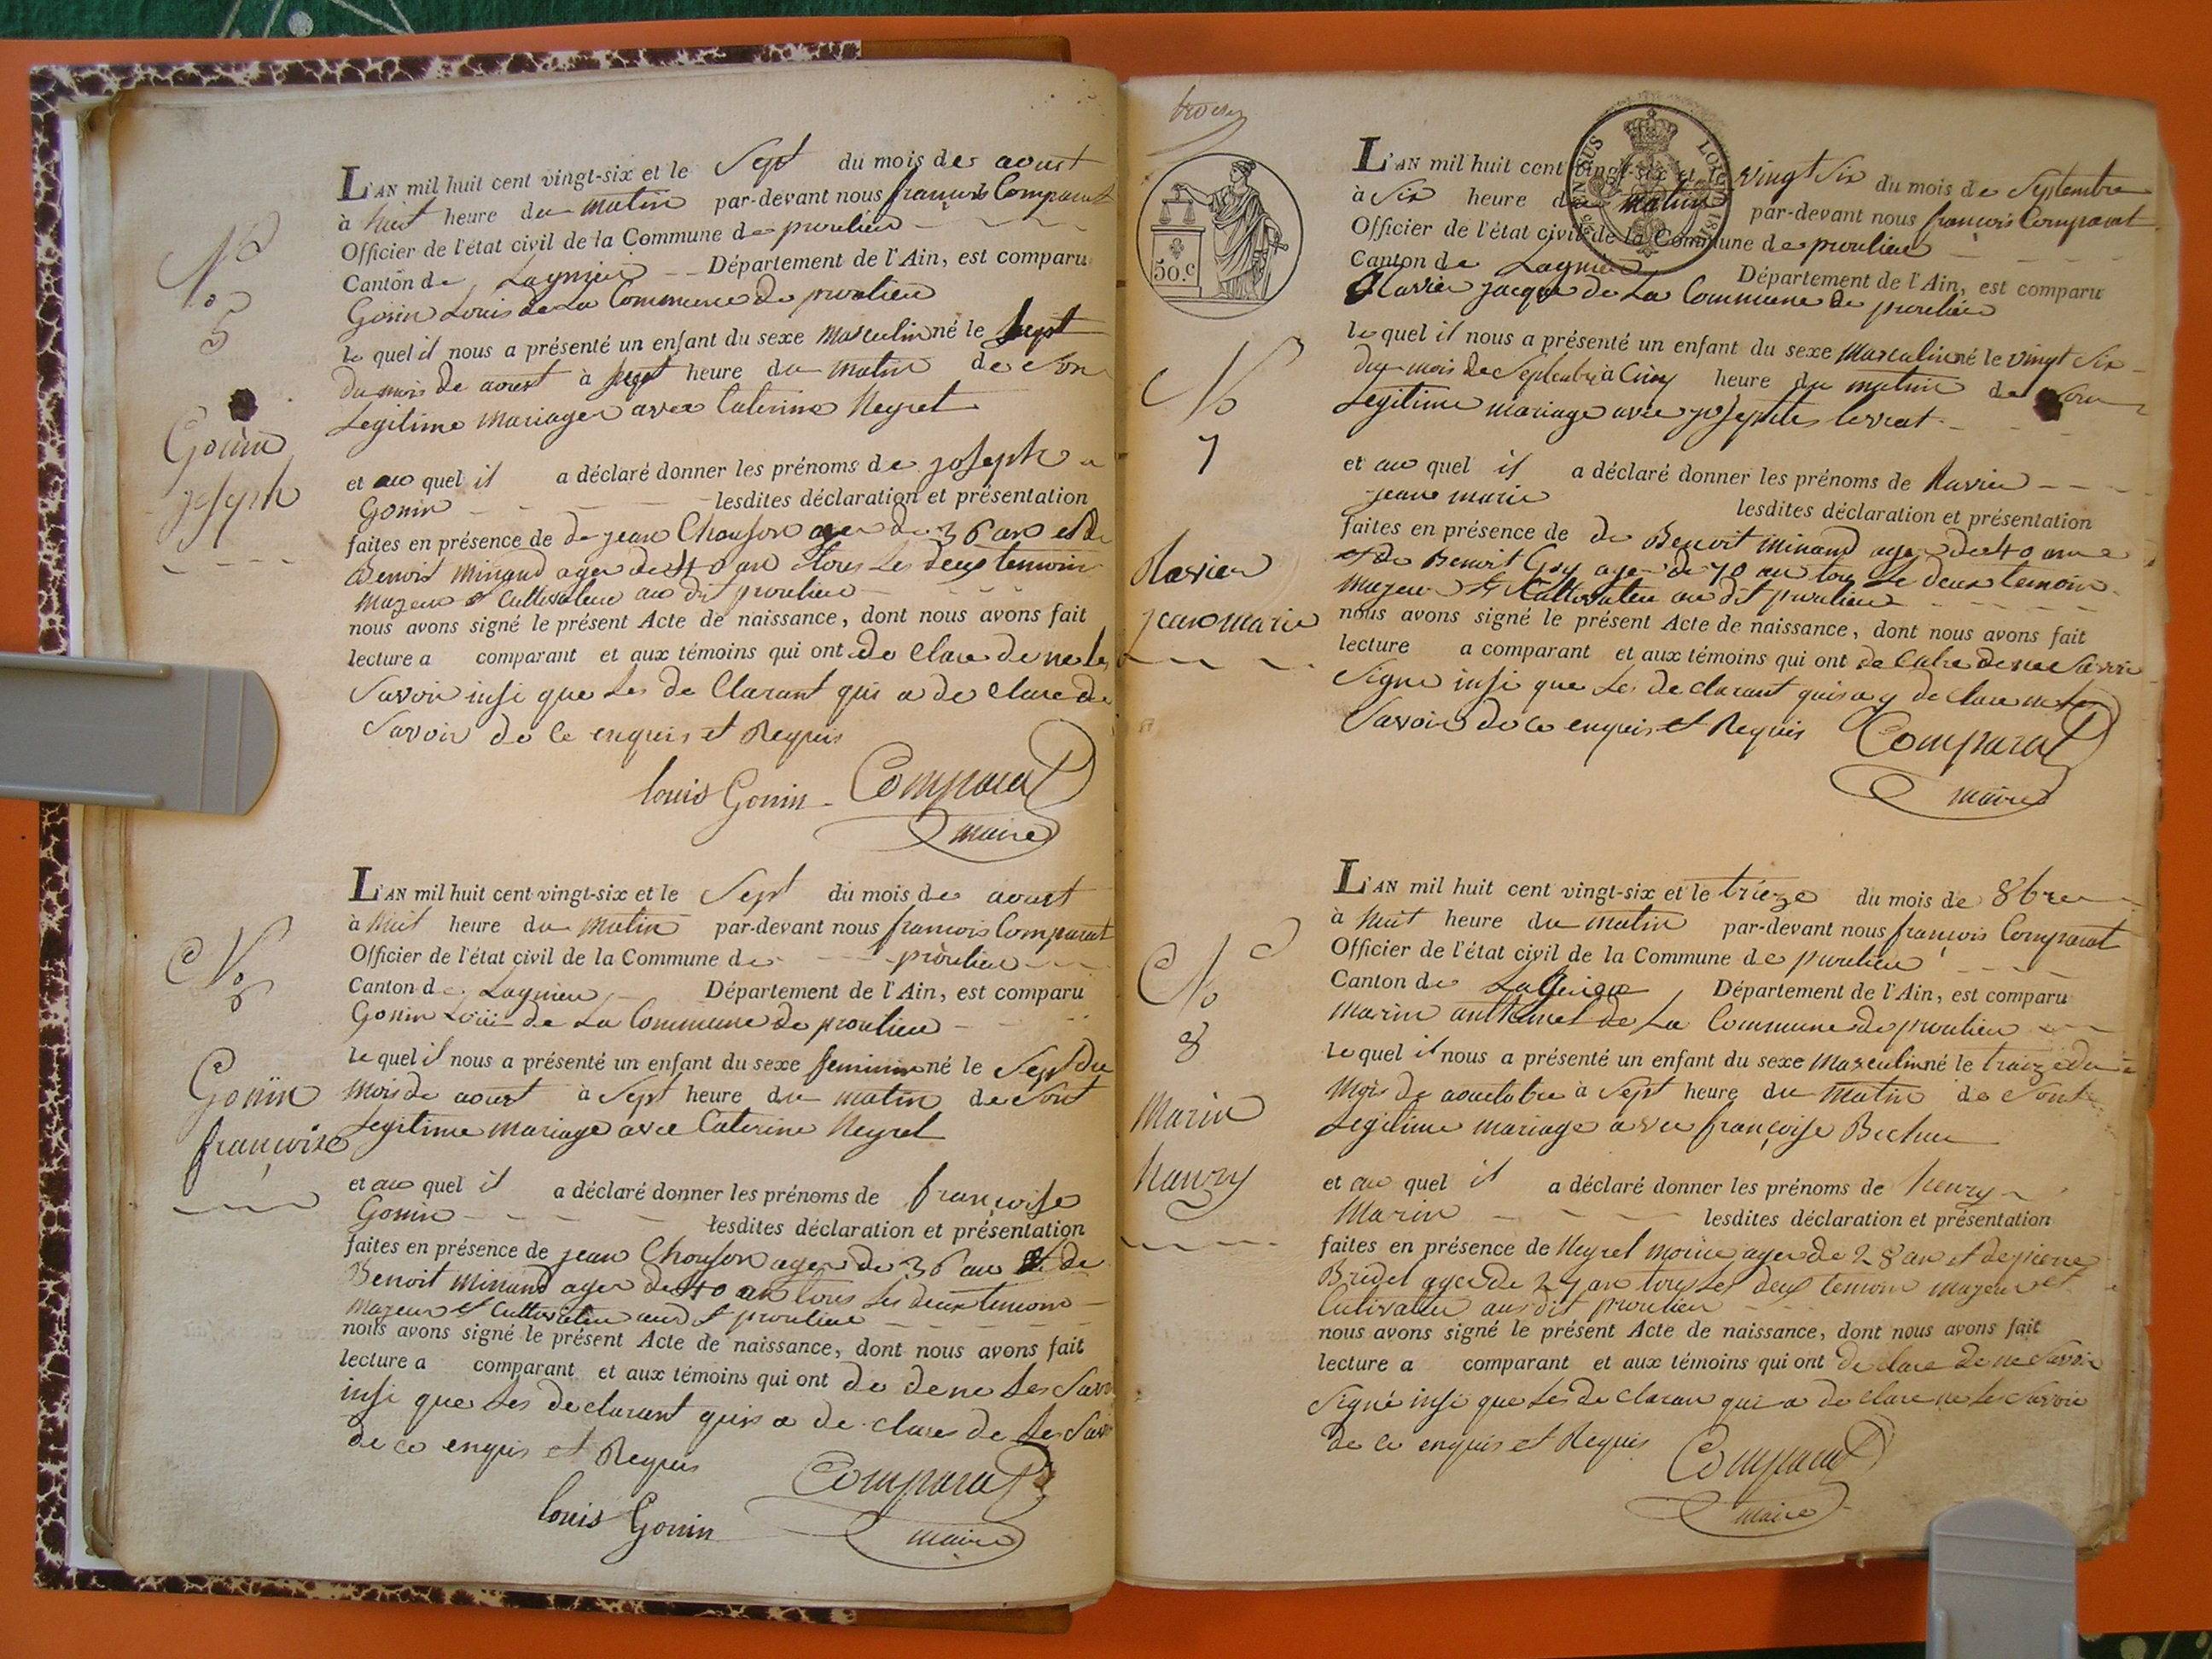 L'AN mil huit cent vingt-six et le Sept du mois de aoust
à huit heure du matin par-devant nous françois Comparat
Officier de l'état civil de la Commune de proulieu
Canton de Lagnieu Département de l'Ain, est comparu
Gonin Louis de La Commune de proulieu
le quel il nous a présenté un enfant du sexe masculin né le sept
du mois de aoust à sept heure du matin de son
Legitime mariage avec Caterine Neyret
et au quel il a déclaré donner les prénoms de joseph
Gonin lesdites déclaration et présentation
faites en présence de de jean Chouson ager de 36 an et de
Benoit minand ager de 40 an tous Les deux temoin
majeur et Cultivateur au dit proulieu
nous avons signé le présent Acte de naissance, dont nous avons fait
lecture a comparant et aux témoins qui ont de clare de ne les
Savoir insi que Les de Clarant qui a de clare de
Savoir de ce enquis et Requis
louis Gonin Comparat
maire
No
5
Gonin
joseph
L'AN mil huit cent vingt-six et le Sept du mois de aoust
à huit heure du matin par-devant nous françois Comparat
Officier de l'état civil de la Commune de proulieu
Canton de Lagnieu Département de l'Ain, est comparu
Gonin Louis de La Commune de proulieu
le quel il nous a présenté un enfant du sexe feminin né le Sept du
mois de aoust à Sept heure du matin de Sont
Legitime mariage avec Caterine Neyret
et au quel il a déclaré donner les prénoms de françoise
Gonin lesdites déclaration et présentation
faites en présence de jean Chouson ager de 36 an et de
Benoit minand ager de 40 an tous Les deux temoin
majeur et Cultivateur aud t proulieu
nous avons signé le présent Acte de naissance, dont nous avons fait
lecture a comparant et aux témoins qui ont de de ne Les Savoir
insi que Les declarant quis a de clare de Les Savoir
de ce enquis et Requis
Comparat
louis Gonin maire
No
6
Gonin
françoise
50.c
L'AN mil huit cent vingt-six et le vingt Six du mois de Septembre
à Six heure du matin par-devant nous françois Comparat
Officier de l'état civil de la Commune de proulieu
Canton de Lagnieu Département de l'Ain, est comparu
Ravier jacque de La Commune de proulieu
le quel il nous a présenté un enfant du sexe masculin né le vingt Six
du mois de Septembre à Cinq heure du matin de Son
Legitime mariage avec josephte levrat
et au quel il a déclaré donner les prénoms de Ravier
jean marie lesdites déclaration et présentation
faites en présence de de Benoit minand ager de 40 anne
et de Benoit Guy ager de 70 an tous Le deux temoin
majeur et Cultivateur au dit proulieu
nous avons signé le présent Acte de naissance, dont nous avons fait
lecture a comparant et aux témoins qui ont de Calre de ne Savoir
Signe insi que Les declarant quis a y de clare ne Le
Savoir de ce enquis et Requis Comparat
maire
No
7
Ravier
jean marie
L'AN mil huit cent vingt-six et le trieze du mois de 8bre
à huit heure du matin par-devant nous françois Comparat
Officier de l'état civil de la Commune de proulieu
Canton de Département de l'Ain, est comparu
marin anthemet de La Commune de proulieu
le quel il nous a présenté un enfant du sexe masculin né le traize du
mois de aouctobre à Sept heure du matin de Sont
Legitime mariage avec françoise
et au quel il a déclaré donner les prénoms de henry
Marin lesdites déclaration et présentation
faites en présence de Neyret ager de 28 an et de pierre
Bridet ager de 27 an tous Les deux temoin majeur et
Cultivateur au dit proulieu
nous avons signé le présent Acte de naissance, dont nous avons fait
lecture a comparant et aux témoins qui ont de clare de ne Savoir
Signé insi que Les de Claran qui a de clare ne Les Savoir
de ce enquis et Requis Comparat
maire
No
8
Marin
haunry